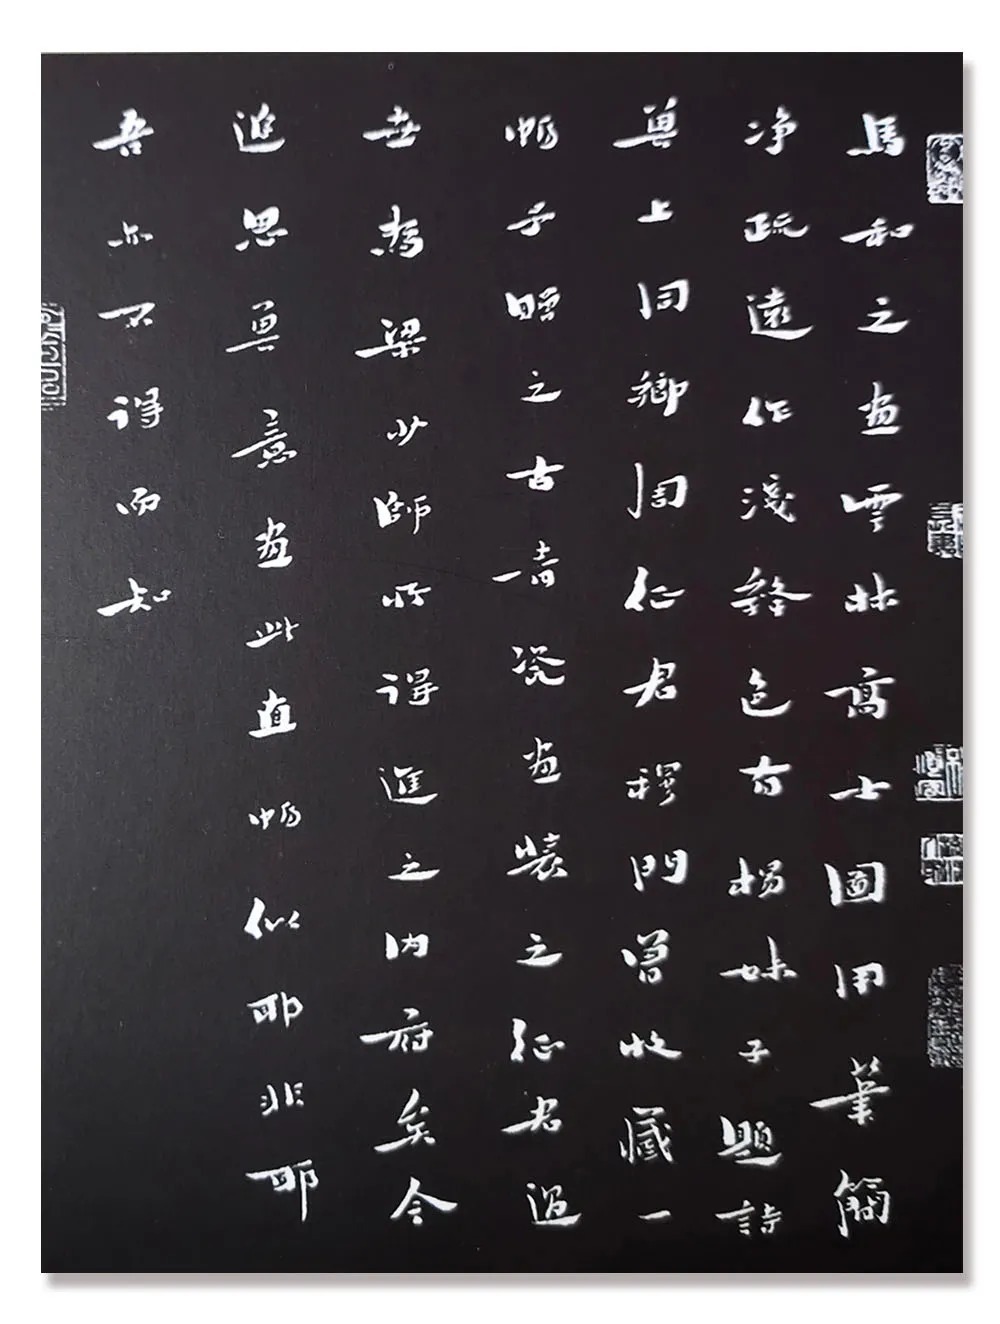 馬和之画雲林高士圖用筆簡
净疏遠作淺絳色有楊妹子題詩
其上同鄉周征君穆門曾收藏一
幅予贈之古青瓷画裝之征君過
世為梁少師所得進之内府矣今
追思其意画此直幅似耶非耶
吾亦不得而知